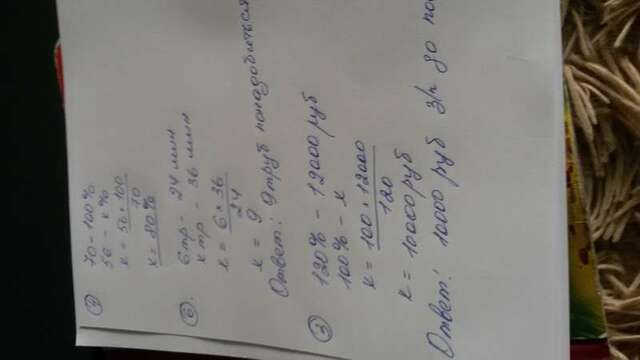 4 70 - 100%
56 - x%
x = 56 * 100
70
x = 80%
6. 6тр - 24 мин
x тр - 36 мин
x = 6 * 36
24
x = 9
Ответ: 9труб понадобиться
3 120% - 12000 руб
100% - x
x = 100 * 12000
120
x = 10000 руб
Ответ: 10000 руб з/п до по